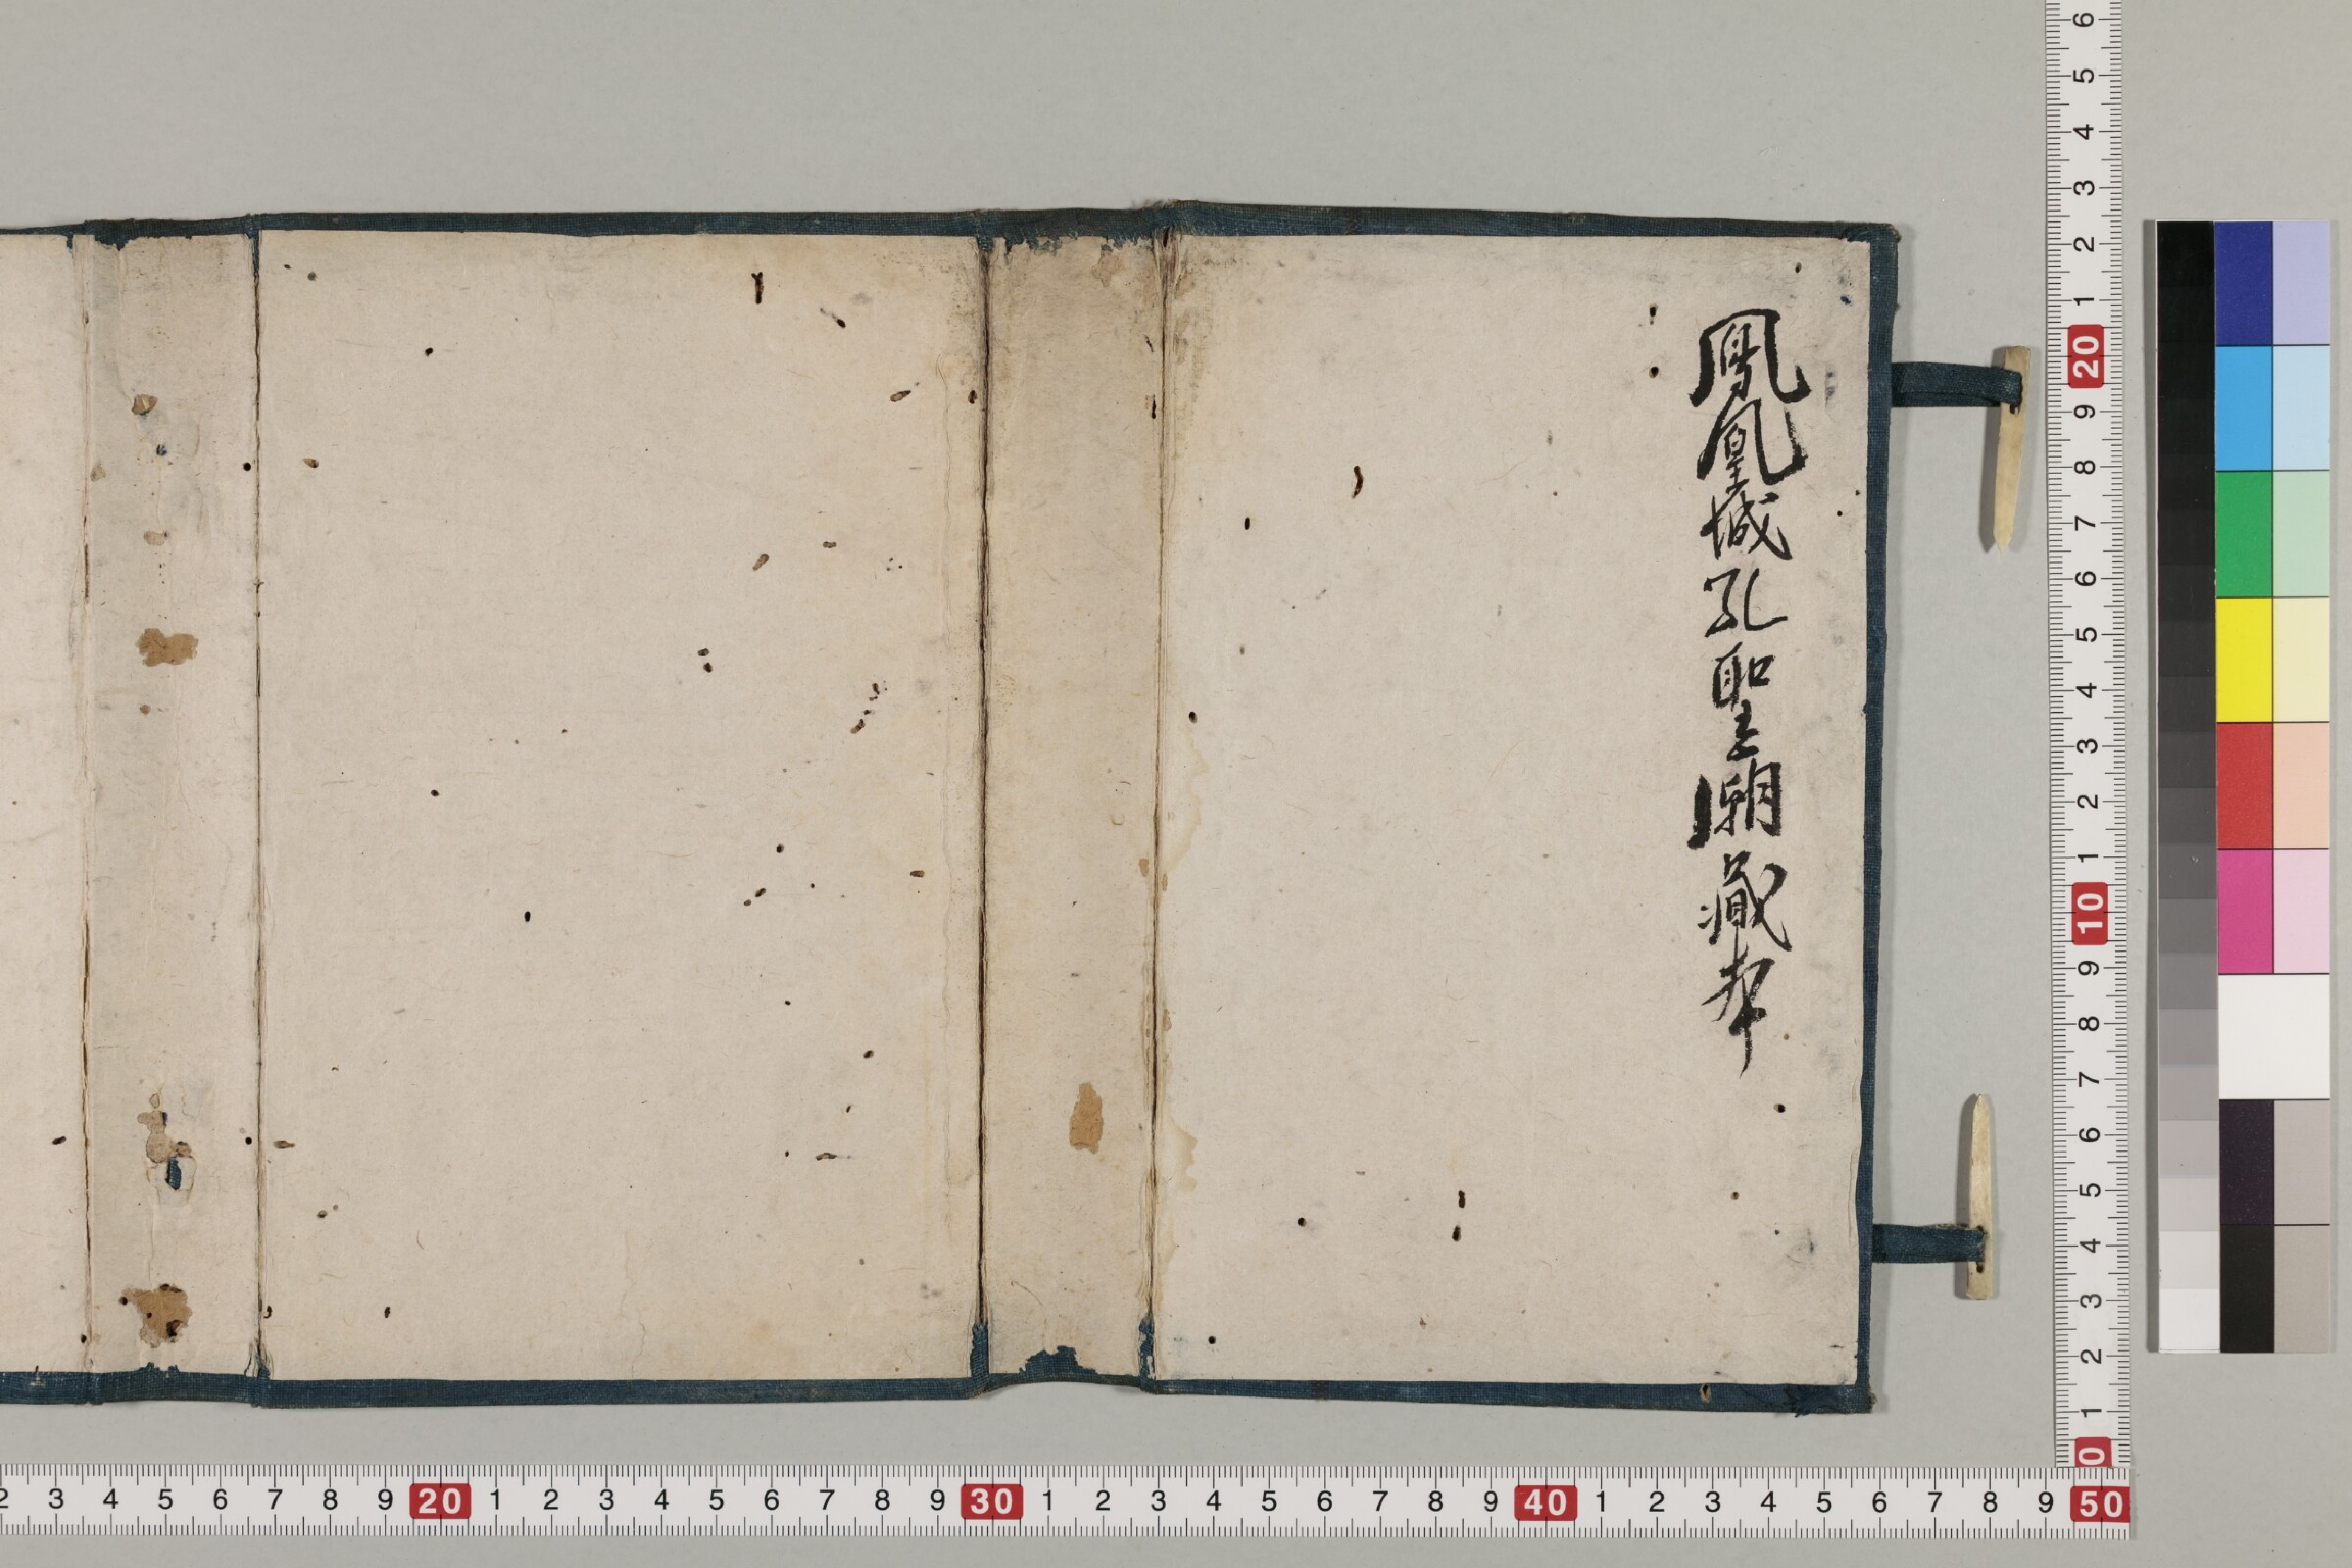 鳳凰城孔聖廟藏
6 5 4 3 2 1 20 9 8 7 6 5 4 3 2 1 10 9 8 7 6 5 4 3 2 1 0
2 3 4 5 6 7 8 9 20 1 2 3 4 5 6 7 8 9 30 1 2 3 4 5 6 7 8 9 40 1 2 3 4 5 6 7 8 9 50